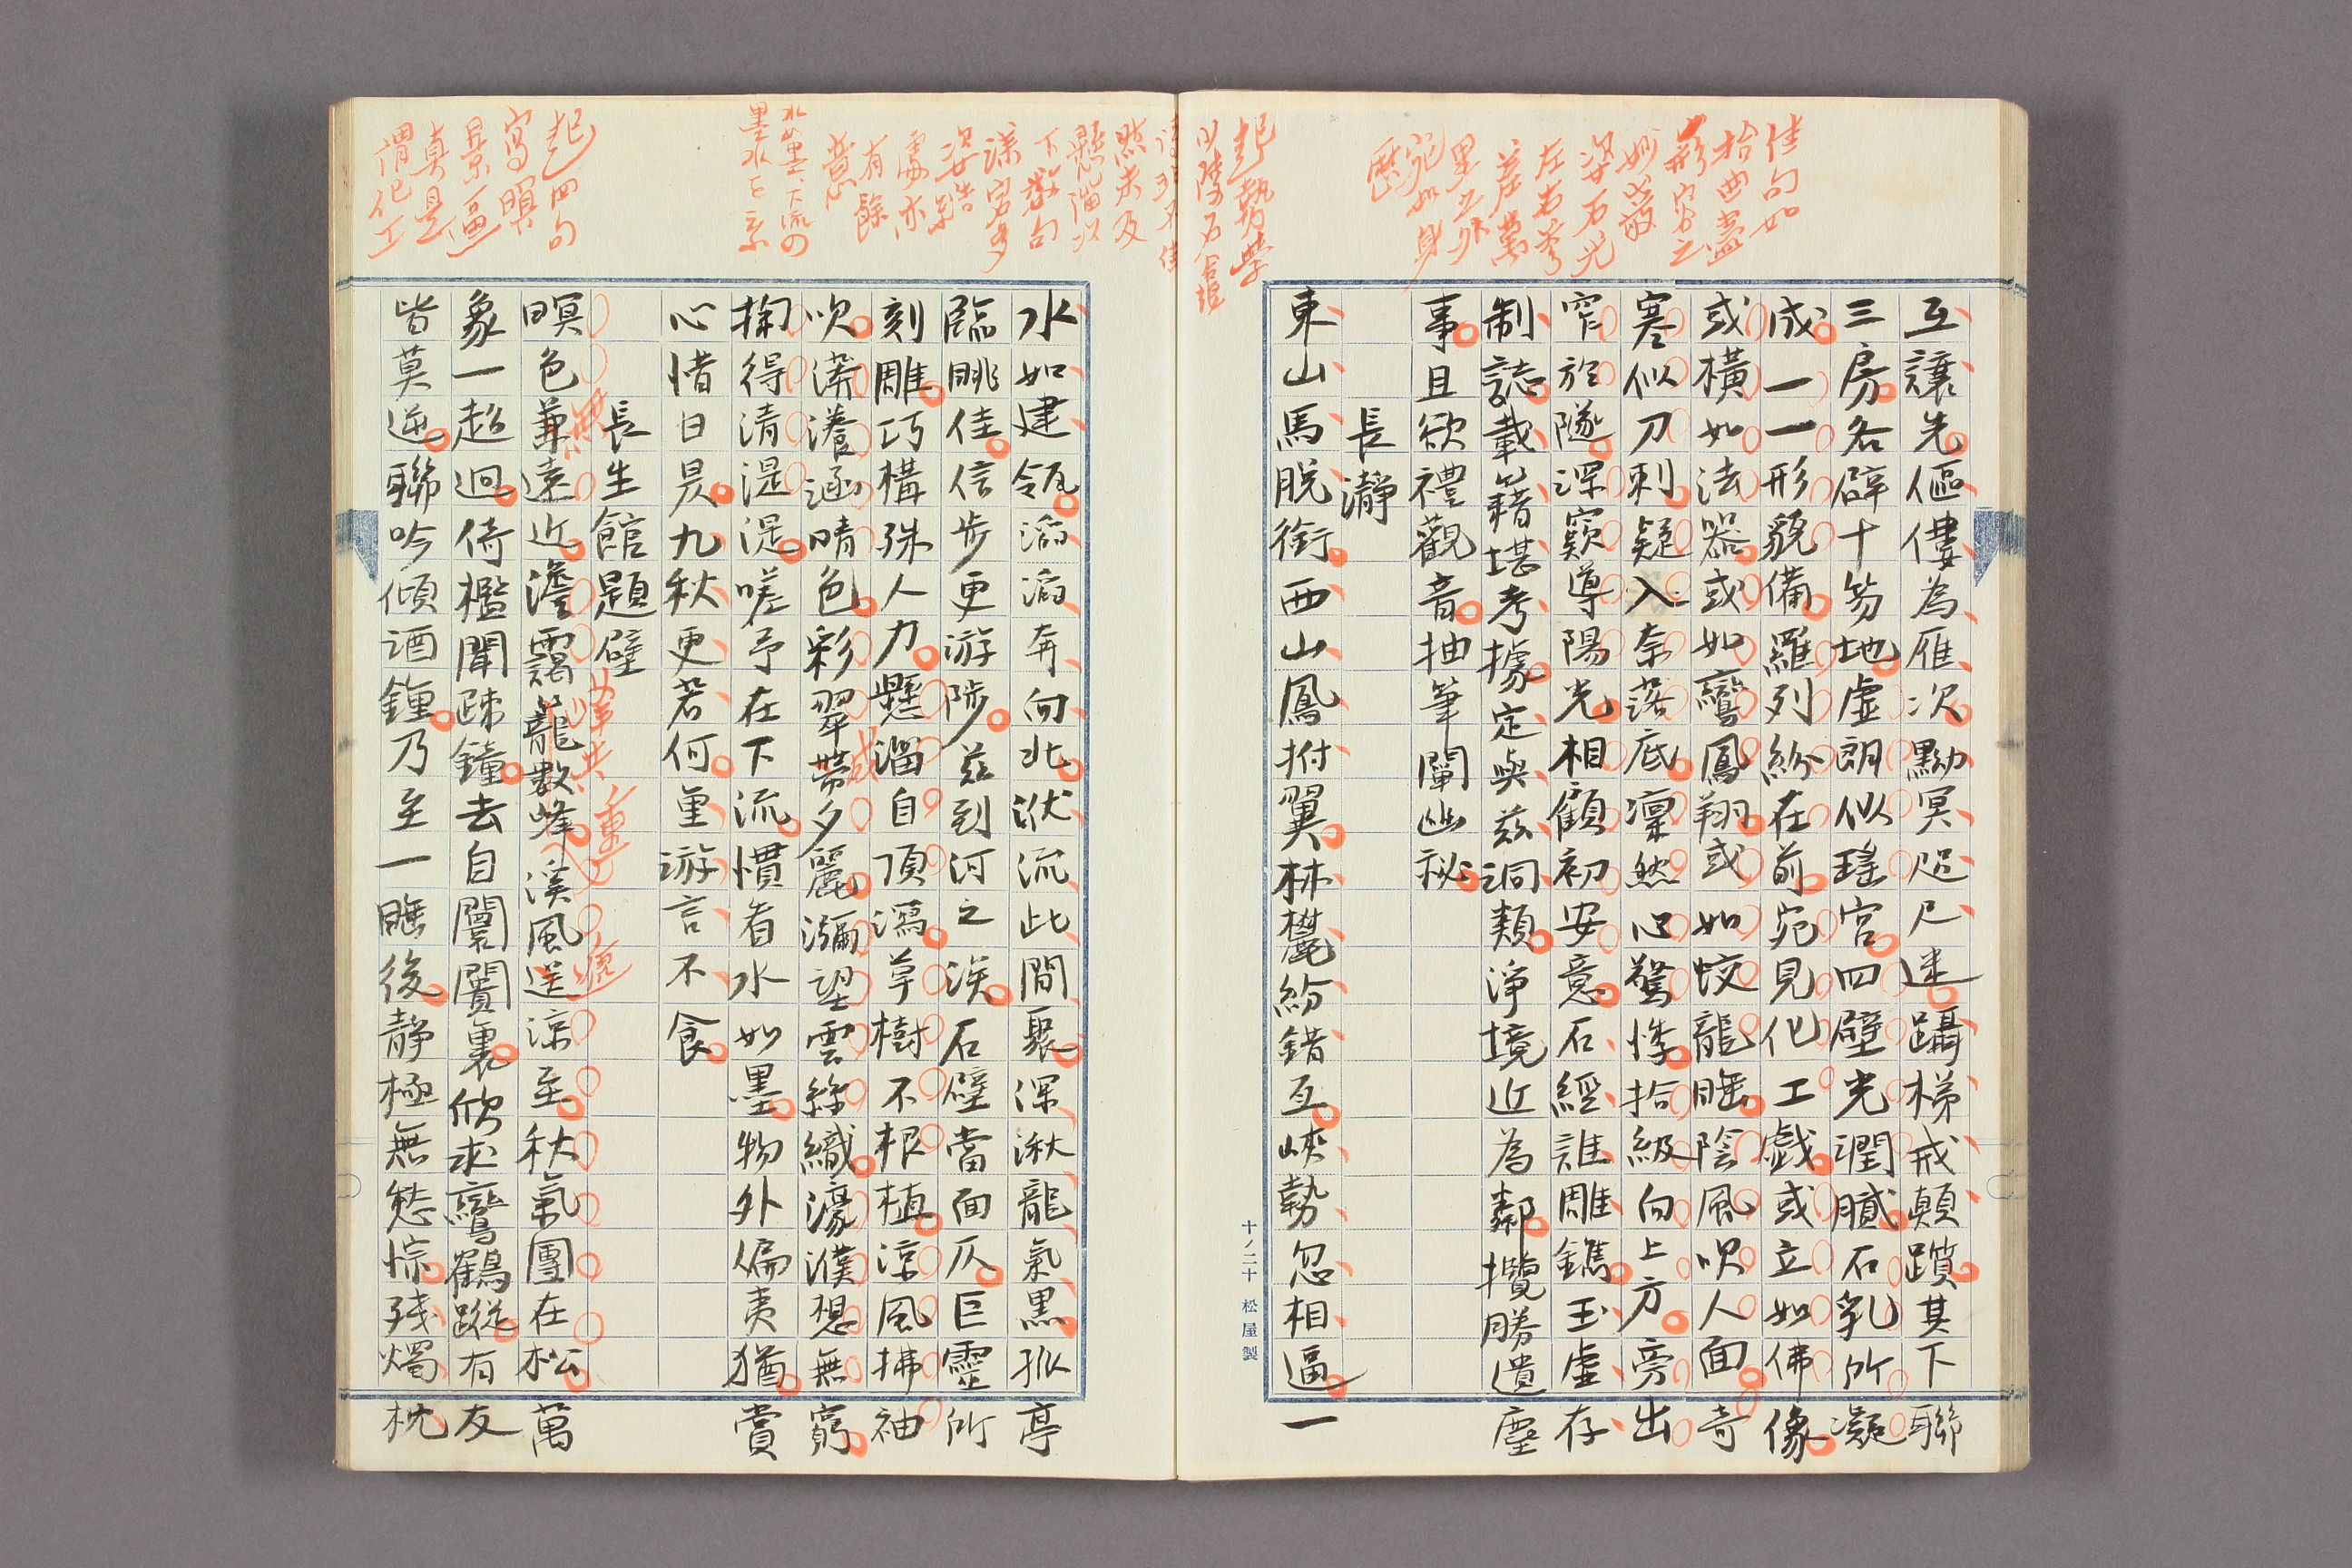 互讓先傴僂為雁次黝冥咫尺迷躡梯戒顛躓其下聯
三房各辟十笏地虛朗似瑤宮四壁光潤膩石乳所凝
成一一形貌備羅列紛在前宛見化工戲或立如佛像
或橫如法器或如鸞鳳翔或如蛟龍睡陰風吹人面奇
寒似刀刺疑入奈落底凜然心驚悸拾級向上方旁出
窄於隧深窺導陽光相顧初安意石經誰雕鐫玉虛存
制誌載籍堪考據定與茲洞類淨境近為鄰攬勝遺塵
事且欲禮觀音抽筆闡幽祕
長瀞
東山馬脫銜西山鳳拊翼林麓紛錯互峽勢忽相逼一
水如建瓴滔滔奔向北洑流此間聚深湫龍氣黑孤亭
臨眺佳信步更游陟茲到河之涘石壁當面仄巨靈所
刻雕巧構殊人力懸溜自頂瀉草樹不根植涼風拂袖
吹漭瀁涵晴色彩翠帶夕麗瀰望雲絲織濠濮想無窮
掬得清湜湜嗟予在下流慣看水如墨物外偏夷猶賞
心惜日昃九秋更若何重游言不食
長生館題壁
暝色兼遠近澹靄籠數峰溪風送涼至秋氣團在松萬
象一超迥倚檻聞疎鐘去自闤闠裏欣求鸞鶴蹤有友
皆莫逆聯吟傾酒鍾乃至一睡後靜極無愁悰殘燭枕
佳句如
拾曲盡
形容之
妙
左右
起勢
然未及
懸溜以
下數句
有餘
意
水如墨下流の
墨水を示
起四句
寫暝
景逼
真是
謂化工
無
十ノ二十 松屋製